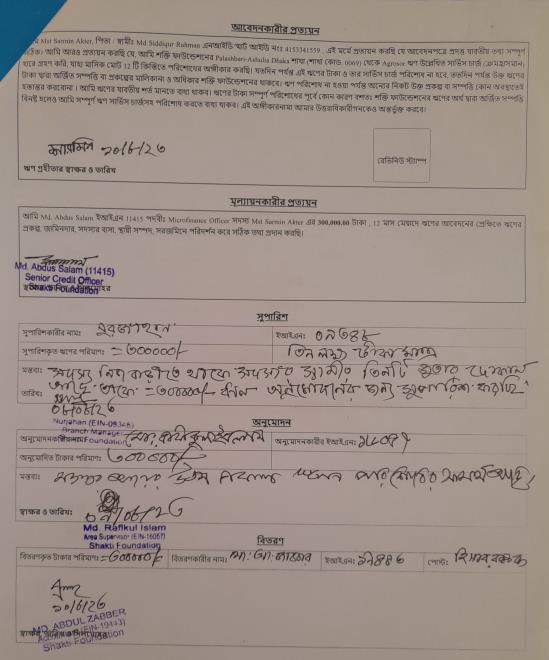 আবেদনকারীর প্রত্যয়ন
Mst Sarmin Akter, পিতা / স্বামীঃ Md Siddiqur Rahman এনআইডি/স্মার্ট আইডি নংঃ 4153341559 , এই মর্মে প্রত্যয়ন করছি যে, আবেদনপত্রে প্রদত্ত যাবতীয় তথ্য সম্পূর্ণ
সঠিক। আমি আরও প্রত্যয়ন করছি যে, আমি শক্তি ফাউন্ডেশনের Palashbari-Ashulia Dhaka শাখা (শাখা কোডঃ 0069) থেকে Agrosor ঋণ উল্লেখিত সার্ভিস চার্জ (ক্রমহ্রাসমান)
হারে গ্রহণ করি, যাহা মাসিক মোট 12 টি কিস্তিতে পরিশোধের অঙ্গীকার করছি। যতদিন পর্যন্ত এই ঋণের টাকা ও তার সার্ভিস চার্জ পরিশোধ না হবে, ততদিন পর্যন্ত উক্ত ঋণের
টাকা দ্বারা অর্জিত সম্পত্তি বা প্রকল্পের মালিকানা ও অধিকার শক্তি ফাউন্ডেশনের থাকবে। ঋণ পরিশোধ না হওয়া পর্যন্ত অন্যের নিকট উক্ত প্রকল্প বা সম্পত্তি কোন অবস্থাতেই
হস্তান্তর করবোনা। আমি ঋণের যাবতীয় শর্ত মানতে বাধ্য থাকব। ঋণের টাকা সম্পূর্ণ পরিশোধের পূর্বে কোন কারণ বশতঃ শক্তি ফাউন্ডেশনের ঋণের অর্থ দ্বারা অর্জিত সম্পত্তি
বিনষ্ট হলেও আমি সম্পূর্ণ ঋণ সার্ভিস চার্জসহ পরিশোধ করতে বাধ্য থাকব। এই অঙ্গীকারনামা আমার উত্তরাধিকারীগনকেও অন্তর্ভুক্ত করবে।
২০/৬/২৩
রেভিনিউ স্ট্যাম্প
ঋণ গ্রহীতার স্বাক্ষর ও তারিখ
মূল্যায়নকারীর প্রত্যয়ন
আমি Md. Abdus Salam ইআইএন 11415 পদবীঃ Microfinance Officer সদস্য Mst Sarmin Akter এর 300,000.00 টাকা , 12 মাস মেয়াদে ঋণের আবেদনের প্রেক্ষিতে ঋণের
প্রকল্প, জামিনদার, সদস্যর বাসা, স্থায়ী সম্পদ, সরজমিনে পরিদর্শন করে সঠিক তথ্য প্রদান করছি।
Md. Abdus Salam (11415)
Senior Credit Officer
Shakti Foundation
সুপারিশ
সুপারিশকারীর নামঃ নুরজাহান ইআইএনঃ
সুপারিশকৃত ঋণের পরিমাণঃ =৩০০০০০/- তিন লক্ষ টাকা মাত্র
মন্তব্যঃ সদস্য নিজ বাড়ীতে থাকে সদস্যের স্বামীর তিনটি সুতার দোকান
আছে তাকে =৩০০০০০/- অনুমোদনের জন্য সুপারিশ করছি
তারিখঃ
Nurjahan (EIN-09348)
Branch Manager
Shakti Foundation
অনুমোদন
অনুমোদনকারীর নামঃ মোঃ রফিকুল ইসলাম অনুমোদনকারীর ইআইএনঃ ১৬০৫৭
অনুমোদিত টাকার পরিমাণঃ ৩০০০০০/-
মন্তব্যঃ
স্বাক্ষর ও তারিখঃ
Md. Rafikul Islam
Area Supervisor (EIN-16057)
Shakti Foundation
বিতরণ
বিতরণকৃত টাকার পরিমাণঃ =৩০০০০০/- বিতরণকারীর নামঃ মোঃ আঃ জাব্বার ইআইএনঃ ১৯৪৪৩ পোস্টঃ হিসাব রক্ষক
২০/৬/২৩
MD. ABDUL ZABBER
(EIN-19443)
Shakti Foundation